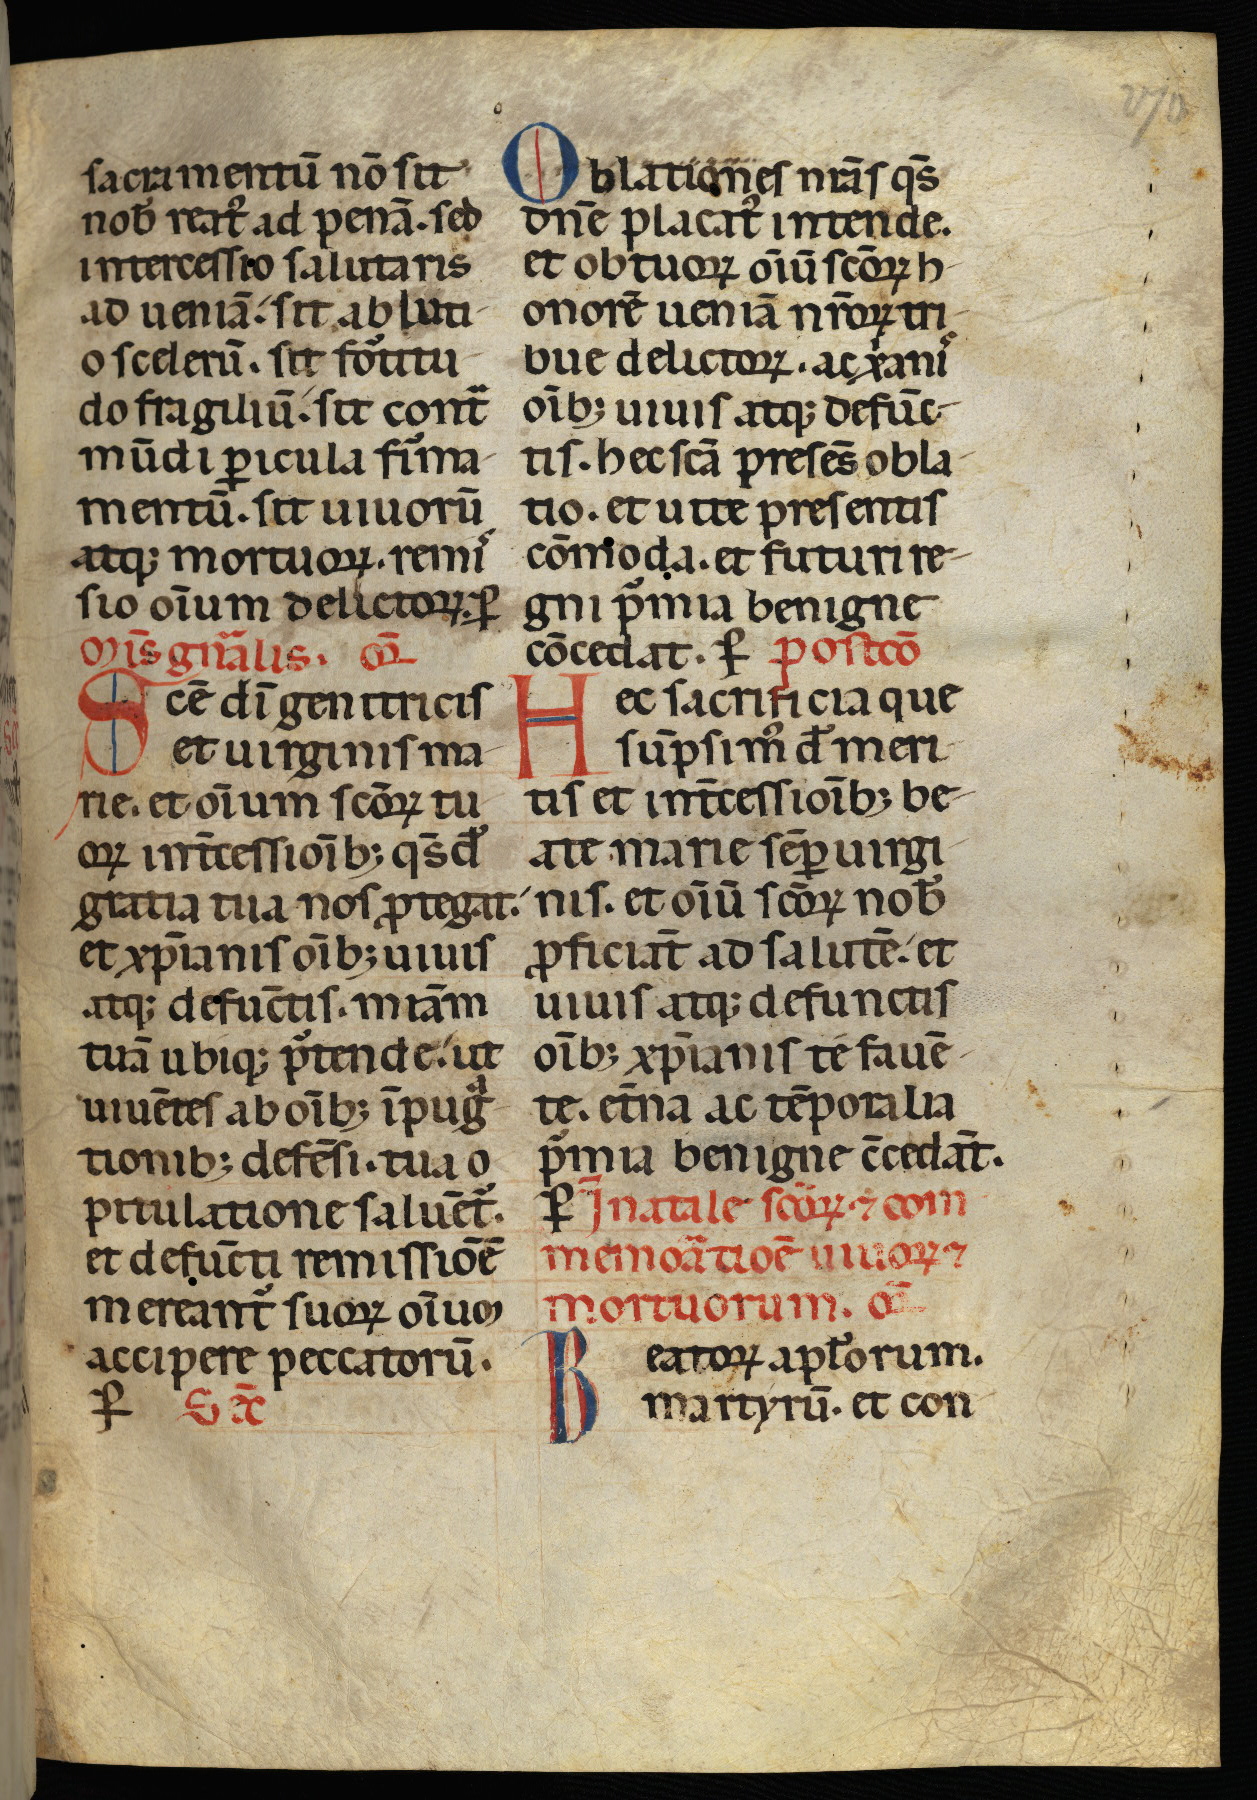 sacramentū nō sit
nob̄ reat᷒ ad penā. sed
intercessio salutaris
ad ueniā. sit abluti-
o scelerū. sit fo͛titu
do fragiliū. sit contᷓ
mūdi ꝑicula fi͛ma-
mentū. sit uiuorū
atq; mortuoꝝ. remiˢ
sio oīum delictoꝝ. ꝑ
Mis̄ gn̄ᷓalis. Oō
Scē dī genitricis
et uirginis ma-
rie. et oīum scōꝝ tu
oꝝ int̄cessioīb; qs̄ d͛
gratia tua nos ꝓtegat.
et xp̄ianis oīb; uiuis
atq; defūctis. mīam
tuā ubiq; p͛tende. ut
uiuētes ab oīb; īpugᷓ
tionib; defēsi. tua o
pitulatione saluēt᷑.
et defūcti remissiōē
mereant᷑ suoꝝ oīum
accipere peccatorū.
ꝑ Sec̄
Oblationes nrās qs̄
dn̄e placat᷒ intende.
et obtuoꝝ oīū scōꝝ h-
onorē ueniā nr̄oꝝ tri-
bue delictoꝝ. ac xᷤani
oīb; uiuis atq; defūc-
tis. hec scā presēs obla-
tio. et uite presentis
cōmoda. et futuri re-
gni p͛mia benigne
cōcedat. ꝑ postcō
Hec sacrificia que
sūpsim᷒ d͛ meri-
tis et int̄cessioīb; be-
ate marie sēꝑ uirgi-
nis. et oīū scōꝝ nob̄
ꝓficiāt ad salutē. et
uiuis atq; defunctis
oīb; xp̄ianis te fauē-
te. et̄na ac tēporalia
p͛mia benigne c̄cedāt.
ꝑ In̄ natale scōꝝ. ⁊ com
memoᷓatioē uiuoꝝ ⁊
mortuorum. Oō
Beatoꝝ apl̄orum.
martyrū. et con-